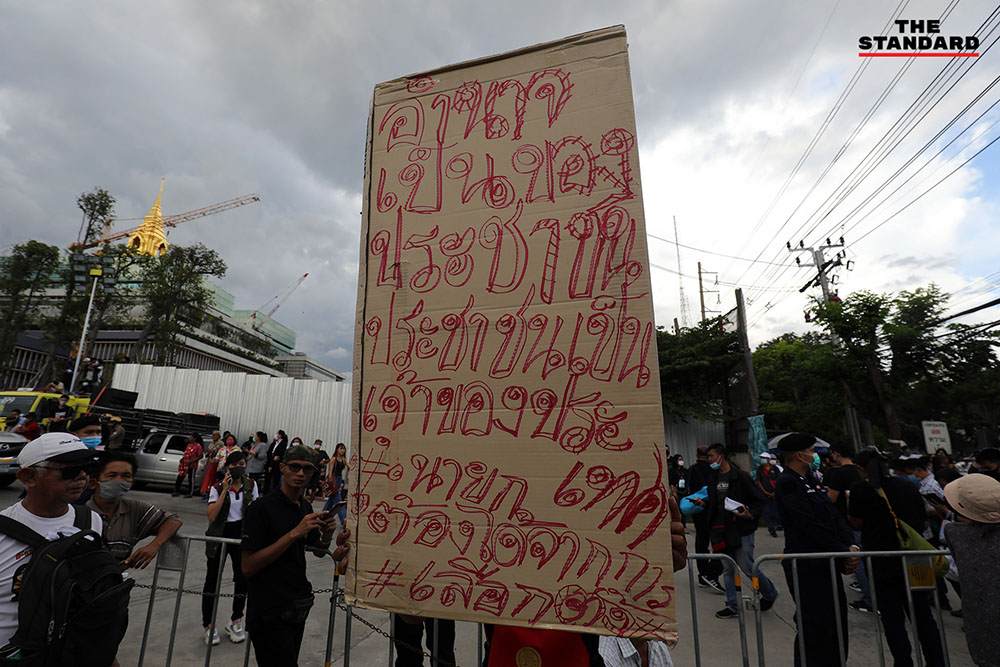 THE
STANDARD
อำนาจ
เป็นของ
ประชาชน
ประชาชนเป็น
เจ้าของประเ
#นายก
ต้อง
#เลือกตั้ง